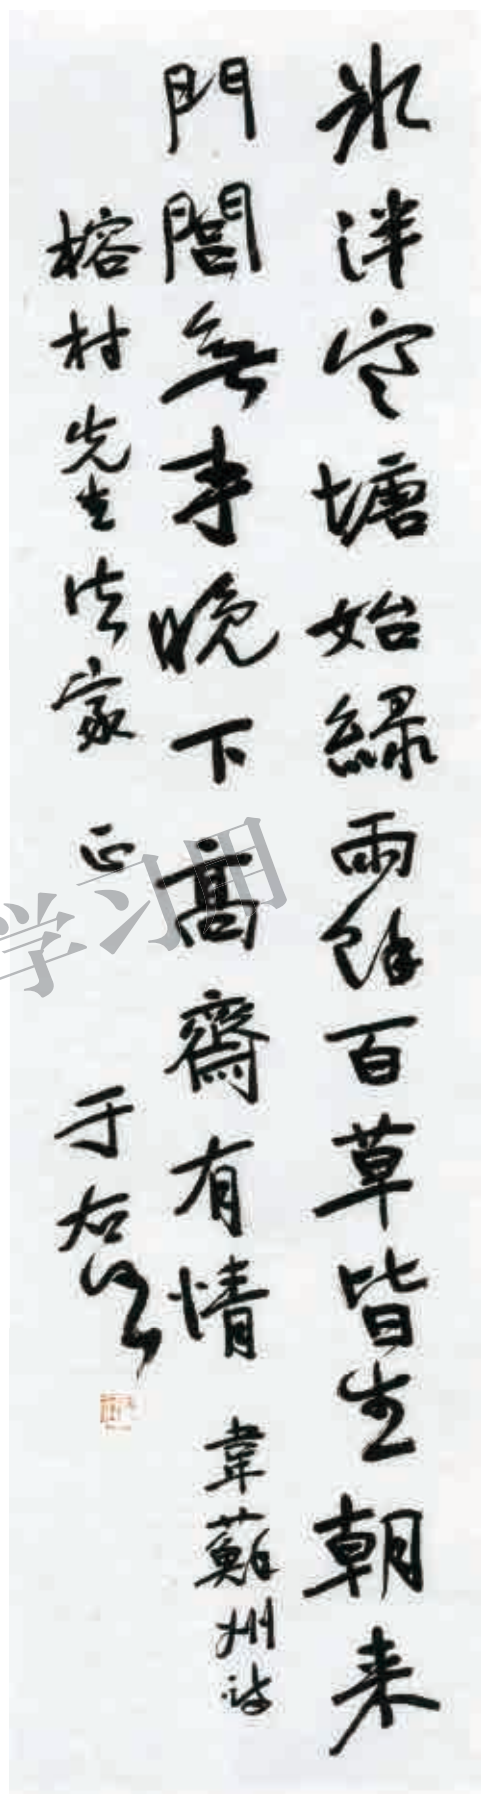 冰泮寒塘始綠雨餘百草皆生朝来
門閭無事晚下髙齋有情 韋蘇州詩
榕村先生法家 正 于右任
学习用